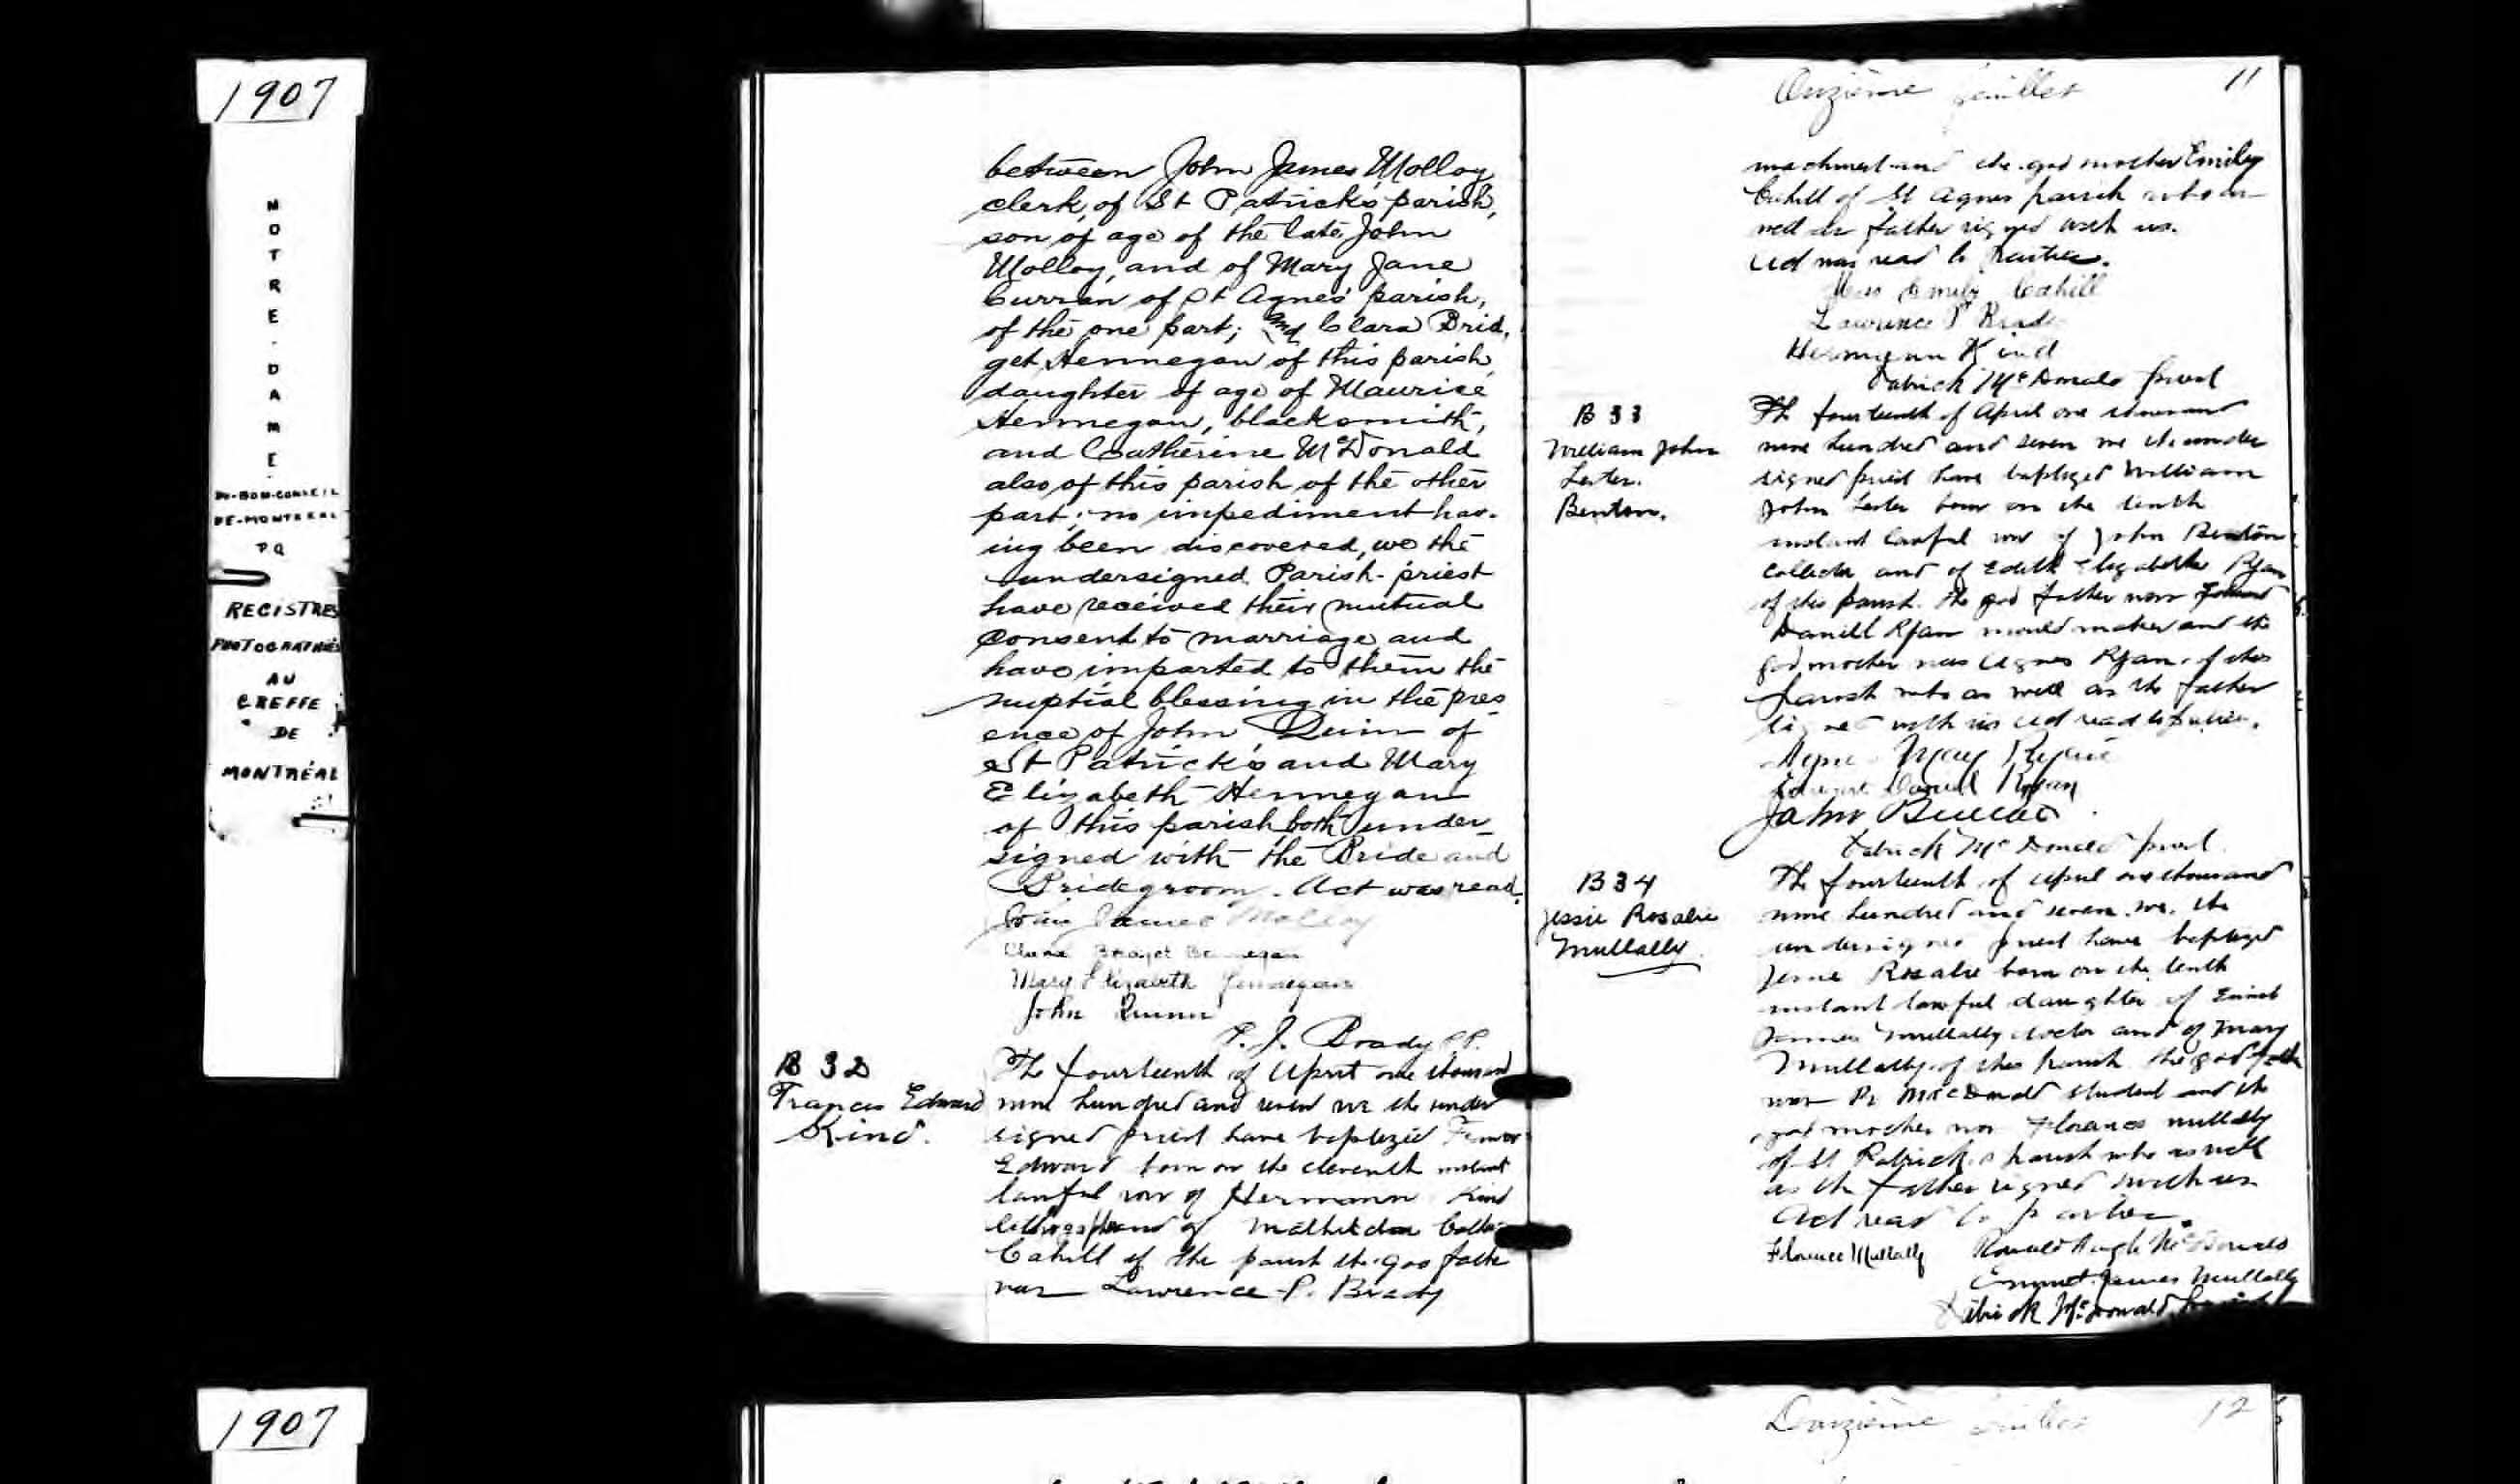 1907
NOTRE-DAME-
DU-BON-CONSEIL
DE-MONTREAL
P.Q
REGISTRES
PHOTOGRAPHIÉS
AU
GREFFE
DE
MONTRÉAL
between John James Molloy
clerk, of St Patrick's parish,
son of age of the late John
Molloy, and of Mary Jane
Curran of St Agnes' parish,
of the one part; and Clara Brid,
get Hennegan of this parish
daughter of age of Maurice
Hennegan, blacksmith,
and Catherine McDonald
also of this parish of the other
part; no impediment hav-
ing been discovered, we the
undersigned Parish-priest
have received their mutual
consent to marriage and
have imparted to them the
nuptial blessing in the pres
ence of John Quinn of
St Patrick's and Mary
Elizabeth Hennegan
of this parish both under-
signed with the Bride and
Bridegroom. Act was read.
John James Molloy
Clara Bridget Hennegan
Mary Elizabeth Hennegan
John Quinn
P. J. Brady P.P.
B 32
Francis Edward
Kind.
The fourteenth of April one thousand
nine hundred and seven we the under
signed priest have baptized Francis
Edward born on the eleventh instant
lawful son of Hermann Kind
and of Mathilda
Cahill of the parish the god father
was Lawrence P. Brady
Onzième feuillet 11
machinist and the god mother Emily
Cahill of St Agnes parish who as
well as father signed with us.
Act was read to parties.
Miss Emily Cahill
Lawrence P Brady
Hermann Kind
Patrick McDonald priest
B 33
William John
Lester.
Benton.
The fourteenth of April one thousand
nine hundred and seven we the under
signed priest have baptized William
John Lester born on the tenth
instant lawful son of John Benton
collector and of Edith Elizabeth Ryan
of this parish. The god father was Edward
Daniell Ryan mould maker and the
god mother was Agnes Ryan of this
parish who as well as the father
signed with us Act read to parties.
Agnes May Ryan
Edward Daniel Ryan
John Benton
Patrick McDonald priest.
B 34
Jessie Rosalie
Mullally.
The fourteenth of April one thousand
nine hundred and seven. we. the
undersigned priest have baptized
Jessie Rosalie born on the tenth
instant lawful daughter of Emmet
James Mullally doctor and of Mary
Mullally of this parish the god father
was R. MacDonald student and the
god mother was Florence Mullally
of St Patrick's parish who as well
as the father signed with us
Act read to parties.
Florence Mullally Ronald Hugh McDonald
Emmet James Mullally
Patrick McDonald priest
1907
Douzième feuillet 12